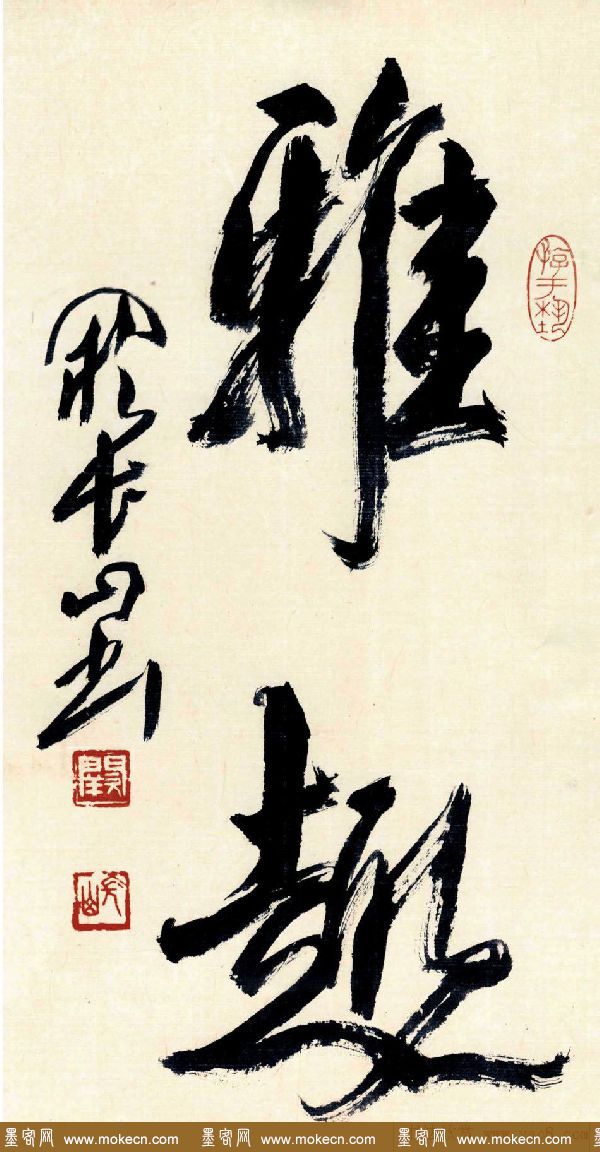 雅趣
阙长山书
墨客网 www.mokecn.com 墨客网 www.mokecn.com 墨客网 www.mokecn.com